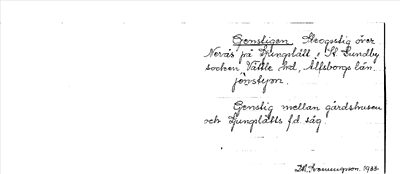 Genstigen. Skogsstig över
Nerås på Ljungslätt, St. Lundby
socken Vättle hd, Älfsborgs län.
Genstig mellan gårdshusen
och Ljungslätts f.d. såg.
1933